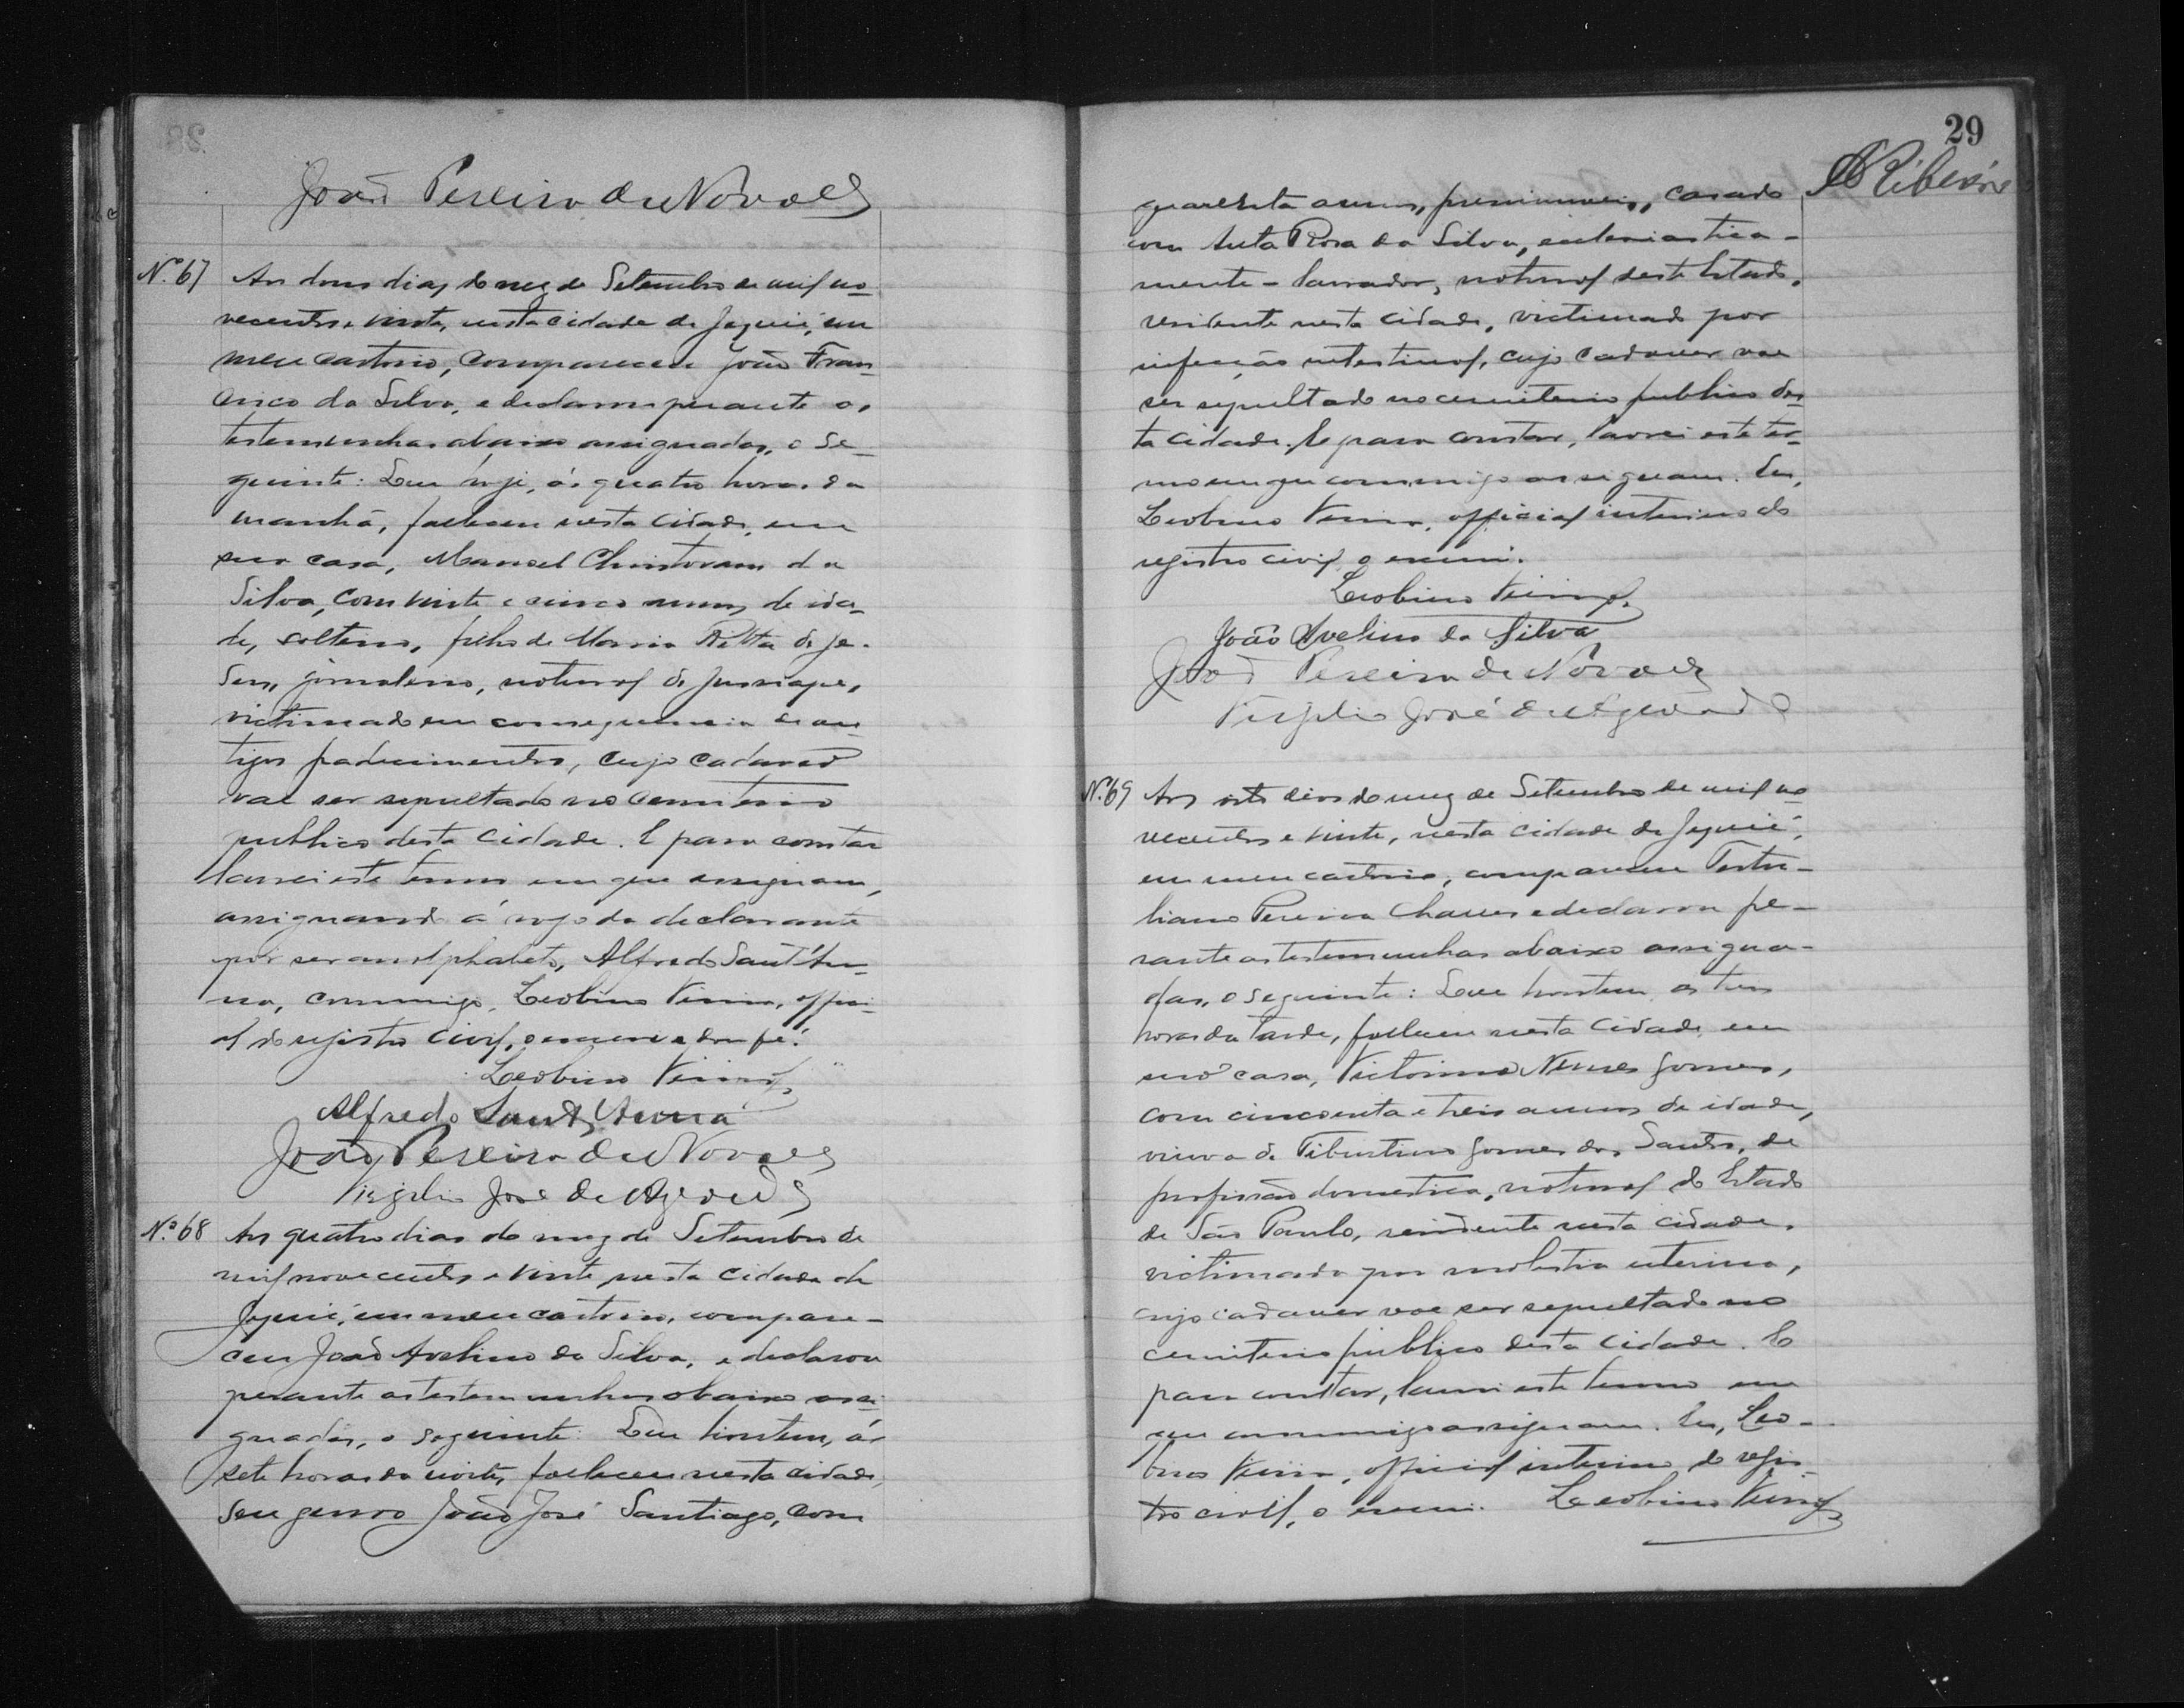 João Pereira de Novaes
Nº 67 Aos dous dias do mez de Setembro de mil no-
vecentos e vinte, nesta cidade de Jequié, em
meu cartorio, compareceu João Fran-
cisco da Silva, e declarou perante as
testemunhas abaixo assignadas, o se-
guinte: Que hoje, ás quatro horas da
manhã, falleceu nesta cidade, em
sua casa, Manoel Christovam da
Silva, com vinte e cinco annos de ida-
de, solteiro, filho de Maria Ritta de Je-
sus, jornaleiro, natural de Jussiape,
victimado em consequencia de an-
tigos padecimentos, cujo cadaver
vae ser sepultado no cemiterio
publico desta cidade. E para constar
lavrei este termo em que assignam,
assignando á rogo do declarante
por ser analphabeto, Alfredo Sant'An-
na, commigo, Leobino Vieira, offici-
al do registro civil, o escrevi e dou fé.
Leobino Vieira
Alfredo Sant'Anna
João Pereira de Novaes
Virgilio José de Azevedo
Nº 68 Aos quatro dias do mez de Setembro de
mil novecentos e vinte, nesta cidade de
Jequié, em meu cartorio, compare-
ceu João Avelino da Silva, e declarou
perante as testemunhas abaixo assi-
gnadas, o seguinte: Que hontem, ás
sete horas da noite, falleceu nesta cidade,
seu genro João José Santiago, com
29
Ribeiro
quarenta annos, presumiveis, casado
com Anta Rosa da Silva, ecclesiastica-
mente - lavrador, natural deste Estado,
residente nesta cidade, victimado por
infecção intestinal, cujo cadaver vae
ser sepultado no cemiterio publico des-
ta cidade. E para constar, lavrei este ter-
mo em que commigo assignam. Eu,
Leobino Vieira, official interino do
registro civil o escrevi.
Leobino Vieira
João Avelino da Silva
João Pereira de Novaes
Virgilio José de Azevedo
Nº 69 Aos oito dias do mez de Setembro de mil no-
vecentos e vinte, nesta cidade de Jequié,
em meu cartorio, compareceu Tertu-
liano Pereira Chaves e declarou pe-
rante as testemunhas abaixo assigna-
das, o seguinte: Que hontem as tres
horas da tarde, falleceu nesta cidade em
sua casa, Victorina Nunes Gomes,
com cincoenta e treis annos de idade,
viuva de Tiburtino Gomes dos Santos, de
profissão domestica, natural do Estado
de São Paulo, residente nesta cidade,
victimada por molestia uterina,
cujo cadaver vae ser sepultado no
cemiterio publico desta cidade. E
para constar, lavrei este termo em
que commigo assignam. Eu, Leo-
bino Vieira, official interino do regis-
tro civil, o escrevi. Leobino Vieira